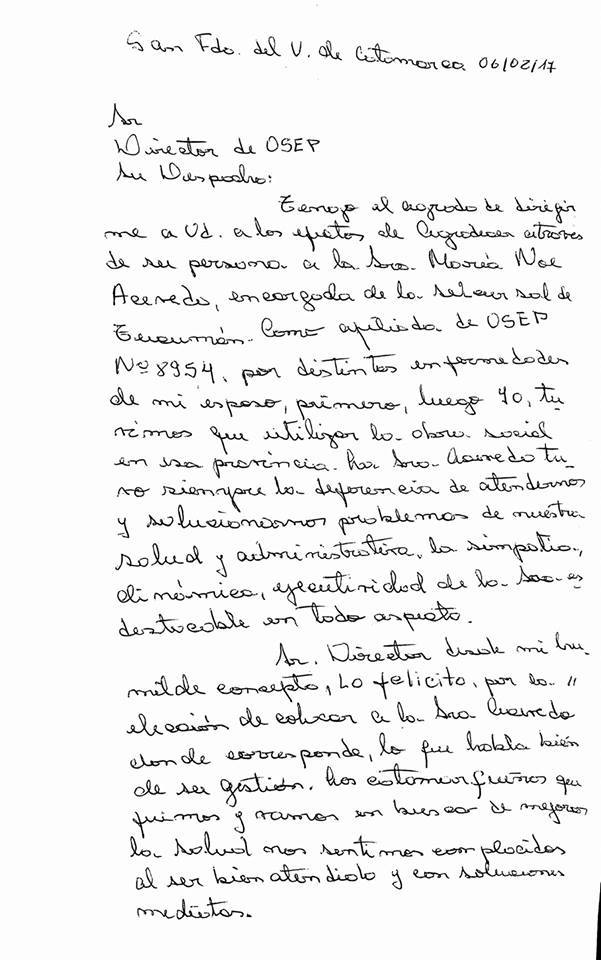 San Fdo. del V. de Catamarca 06/02/17
Sr
Director de OSEP
Su Despacho:
Tengo el agrado de dirigir
me a Ud. a los efectos de Agradecer atraves
de su persona a la Sra. María Noe
Acevedo, encargada de la sucursal de
Tucumán. Como afiliada de OSEP
Nº 8954, por distintas enfermedades
de mi esposo, primero, luego yo, tu
vimos que utilizar la obra social
en esa provincia. La Sra. Acevedo tu-
vo siempre la deferencia de atendernos
y solucionarnos problemas de nuestra
salud y administrativa, la simpatia,
dinámica, ejecutividad de la Sra. es
destacable en todo aspecto.
Sr. Director desde mi hu-
milde concepto, Lo felicito, por la "
elección de colocar a la Sra Acevedo
donde corresponde, lo que habla bien
de su gestión. Los catamarqueños que
fuimos y vamos en busca de mejorar
la salud nos sentimos complacidos
al ser bien atendido y con soluciones